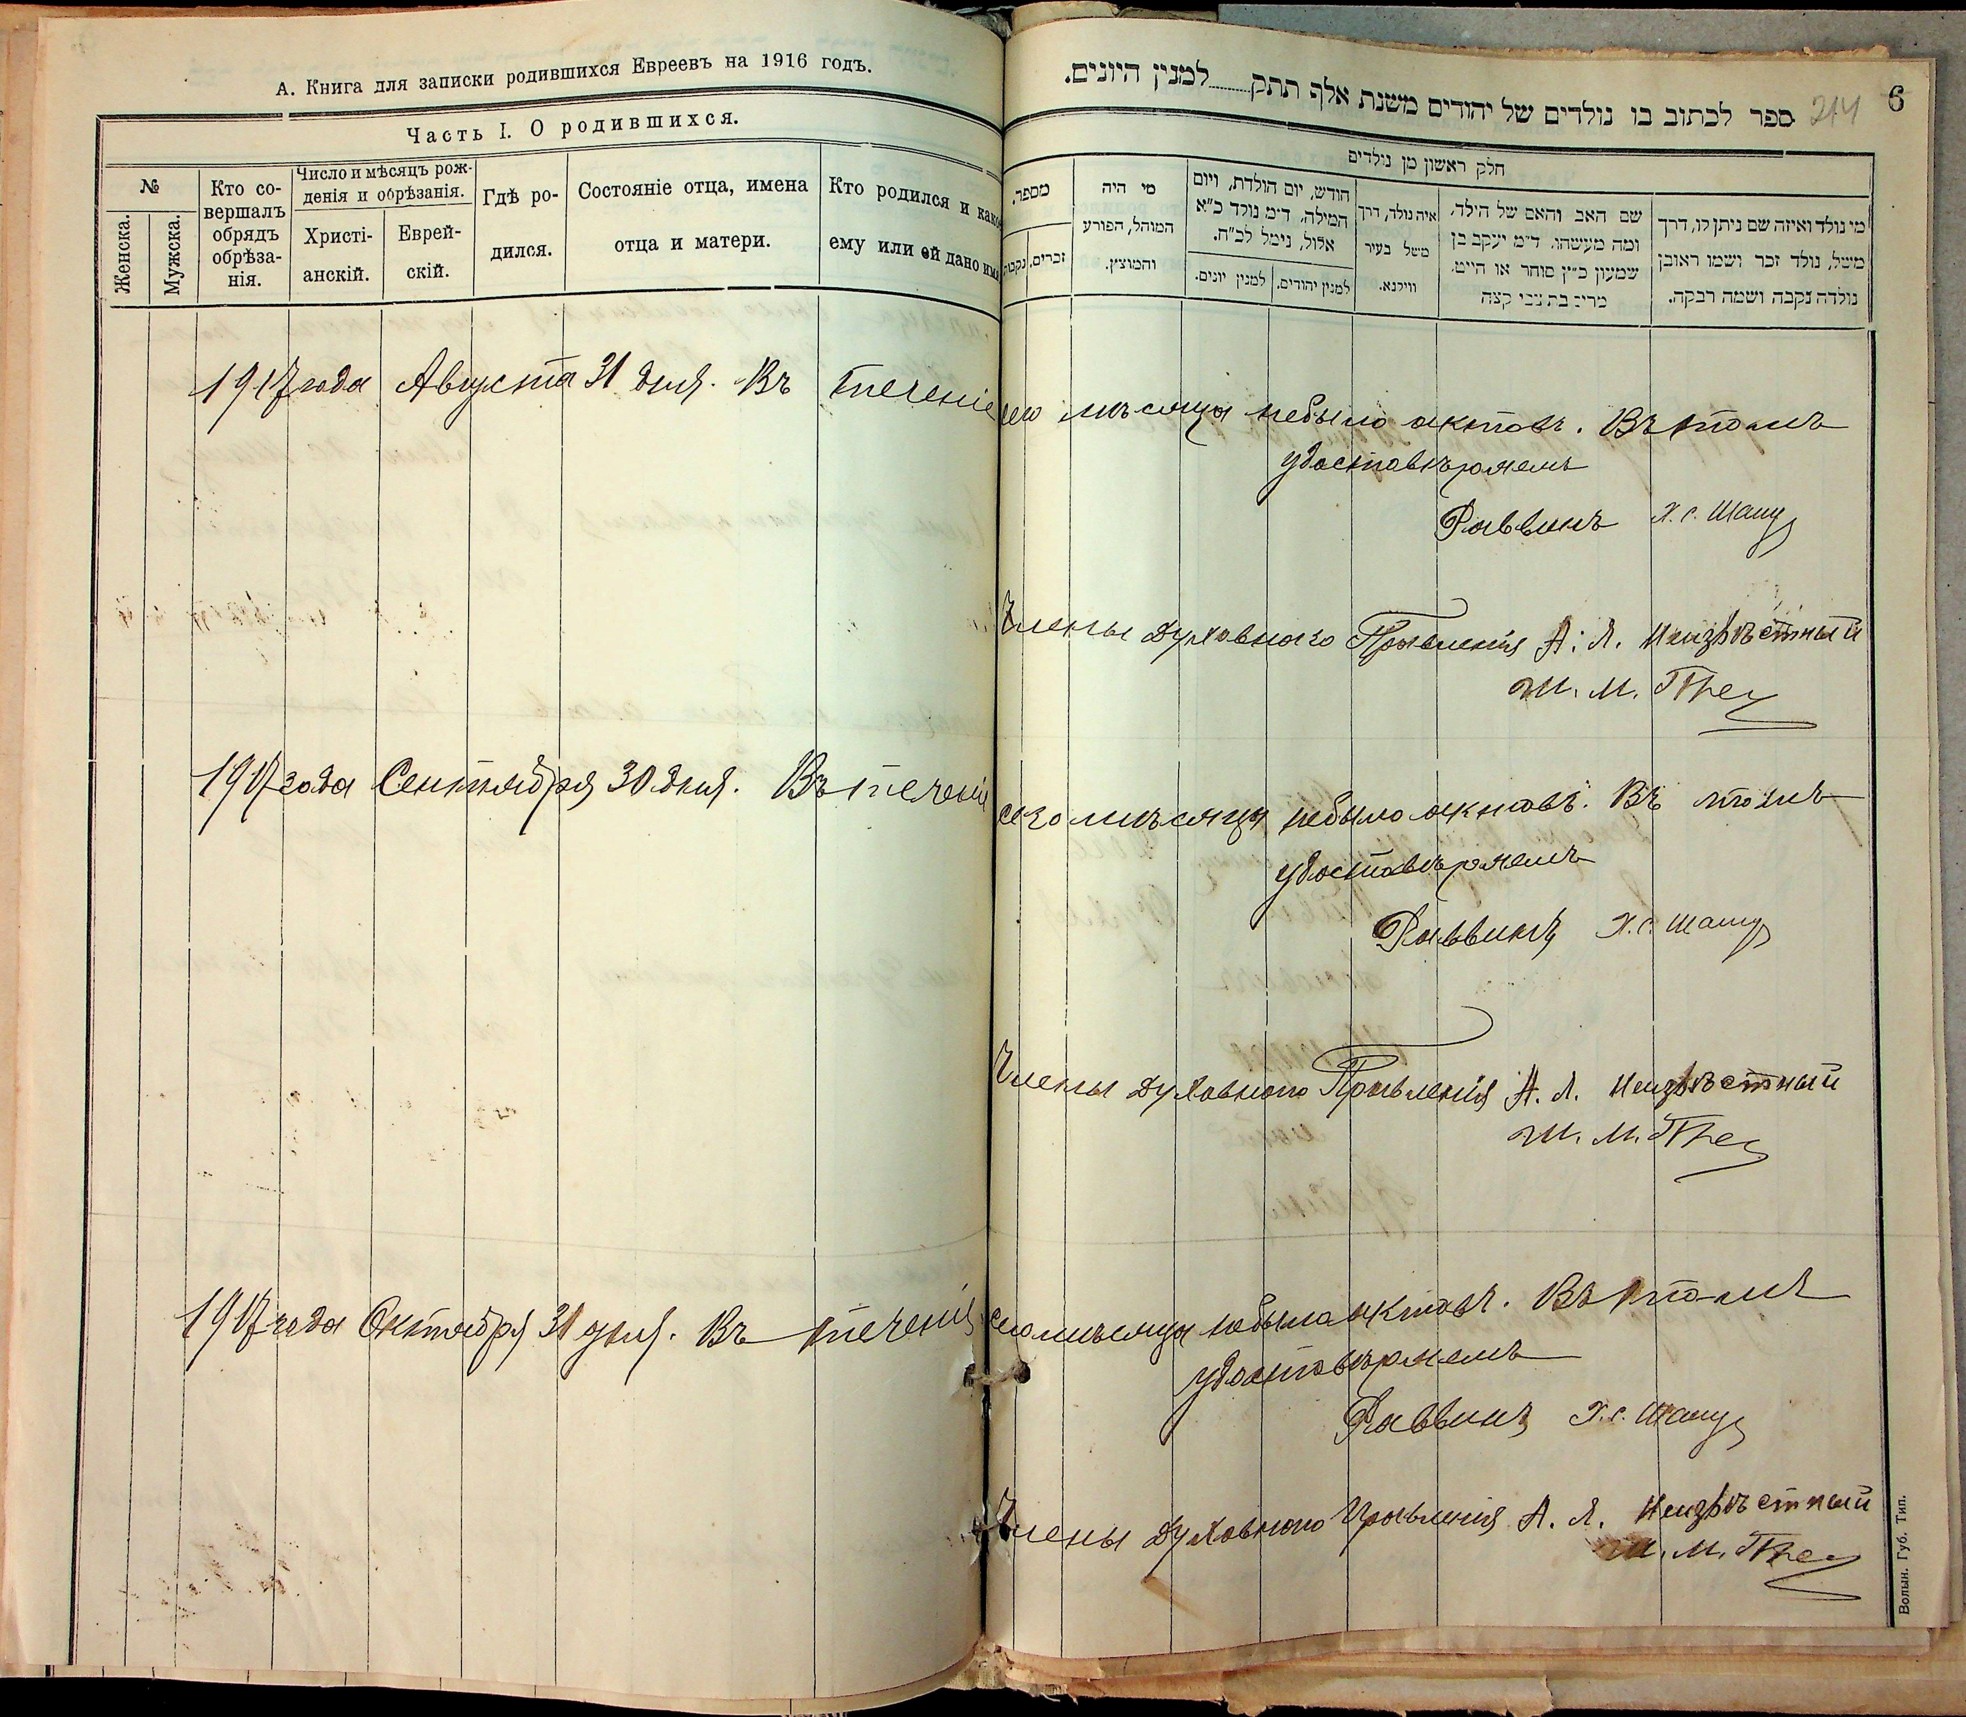 А. Книга для записки родившихся Евреевъ на 1916 годъ.
Часть I. О родившихся.
№
Женска.
Мужска.
Кто со-
вершалъ
обрядъ
обрѣза-
нія.
Число и мѣсяцъ рож-
денія и обрѣзанія.
Христі-
анскій.
Еврей-
скій.
Гдѣ ро-
дился.
Состояніе отца, имена
отца и матери.
Кто родился и како
ему или ей дано имя
ספר לכתוב בו נולדים של יהודים משנת אלף תתק......למנין היונים.
214
6
חלק ראשון מן נולדים
מספר.
זכרים.
נקבות
מי היה
המוהל, הפורע
והמוצץ.
חודש, יום הולדת, ויום
המילה, ד״מ נולד כ״א
אלול, נימל לכ״ח.
למנין יונים.
למנין יהודים.
איה נולד, דרך
משל בעיר
ווילנא.
שם האב והאם של הילד,
ומה מעשהו, ד״מ יעקב בן
שמעון כ״ץ סוחר או חייט,
מרים בת צבי קצה
מי נולד ואיזה שם ניתן לו, דרך
משל, נולד זכר ושמו ראובן
נולדה נקבה ושמה רבקה.
1917 года Августа 31 дня. Въ теченіе сего мѣсяца небыло актовъ. Въ томъ
удостовѣряемъ
Раввинъ Х. С. Шапу
Члены Духовнаго Правленія А. Л. Неизвѣстный
Ш. М.
1917 года Сентября 30 дня. Въ теченіе сего мѣсяца небыло актовъ. Въ томъ
удостовѣряемъ
Раввинъ Х. С. Шапу
Члены Духовнаго Правленія А. Л. Неизвѣстный
Ш. М.
1917 года Октября 31 дня. Въ теченіе сего мѣсяца небыло актовъ. Въ томъ
удостовѣряемъ
Раввинъ Х. С. Шапу
Члены Духовнаго Правленія А. Л. Неизвѣстный
Ш. М.
Волын. Губ. Тип.